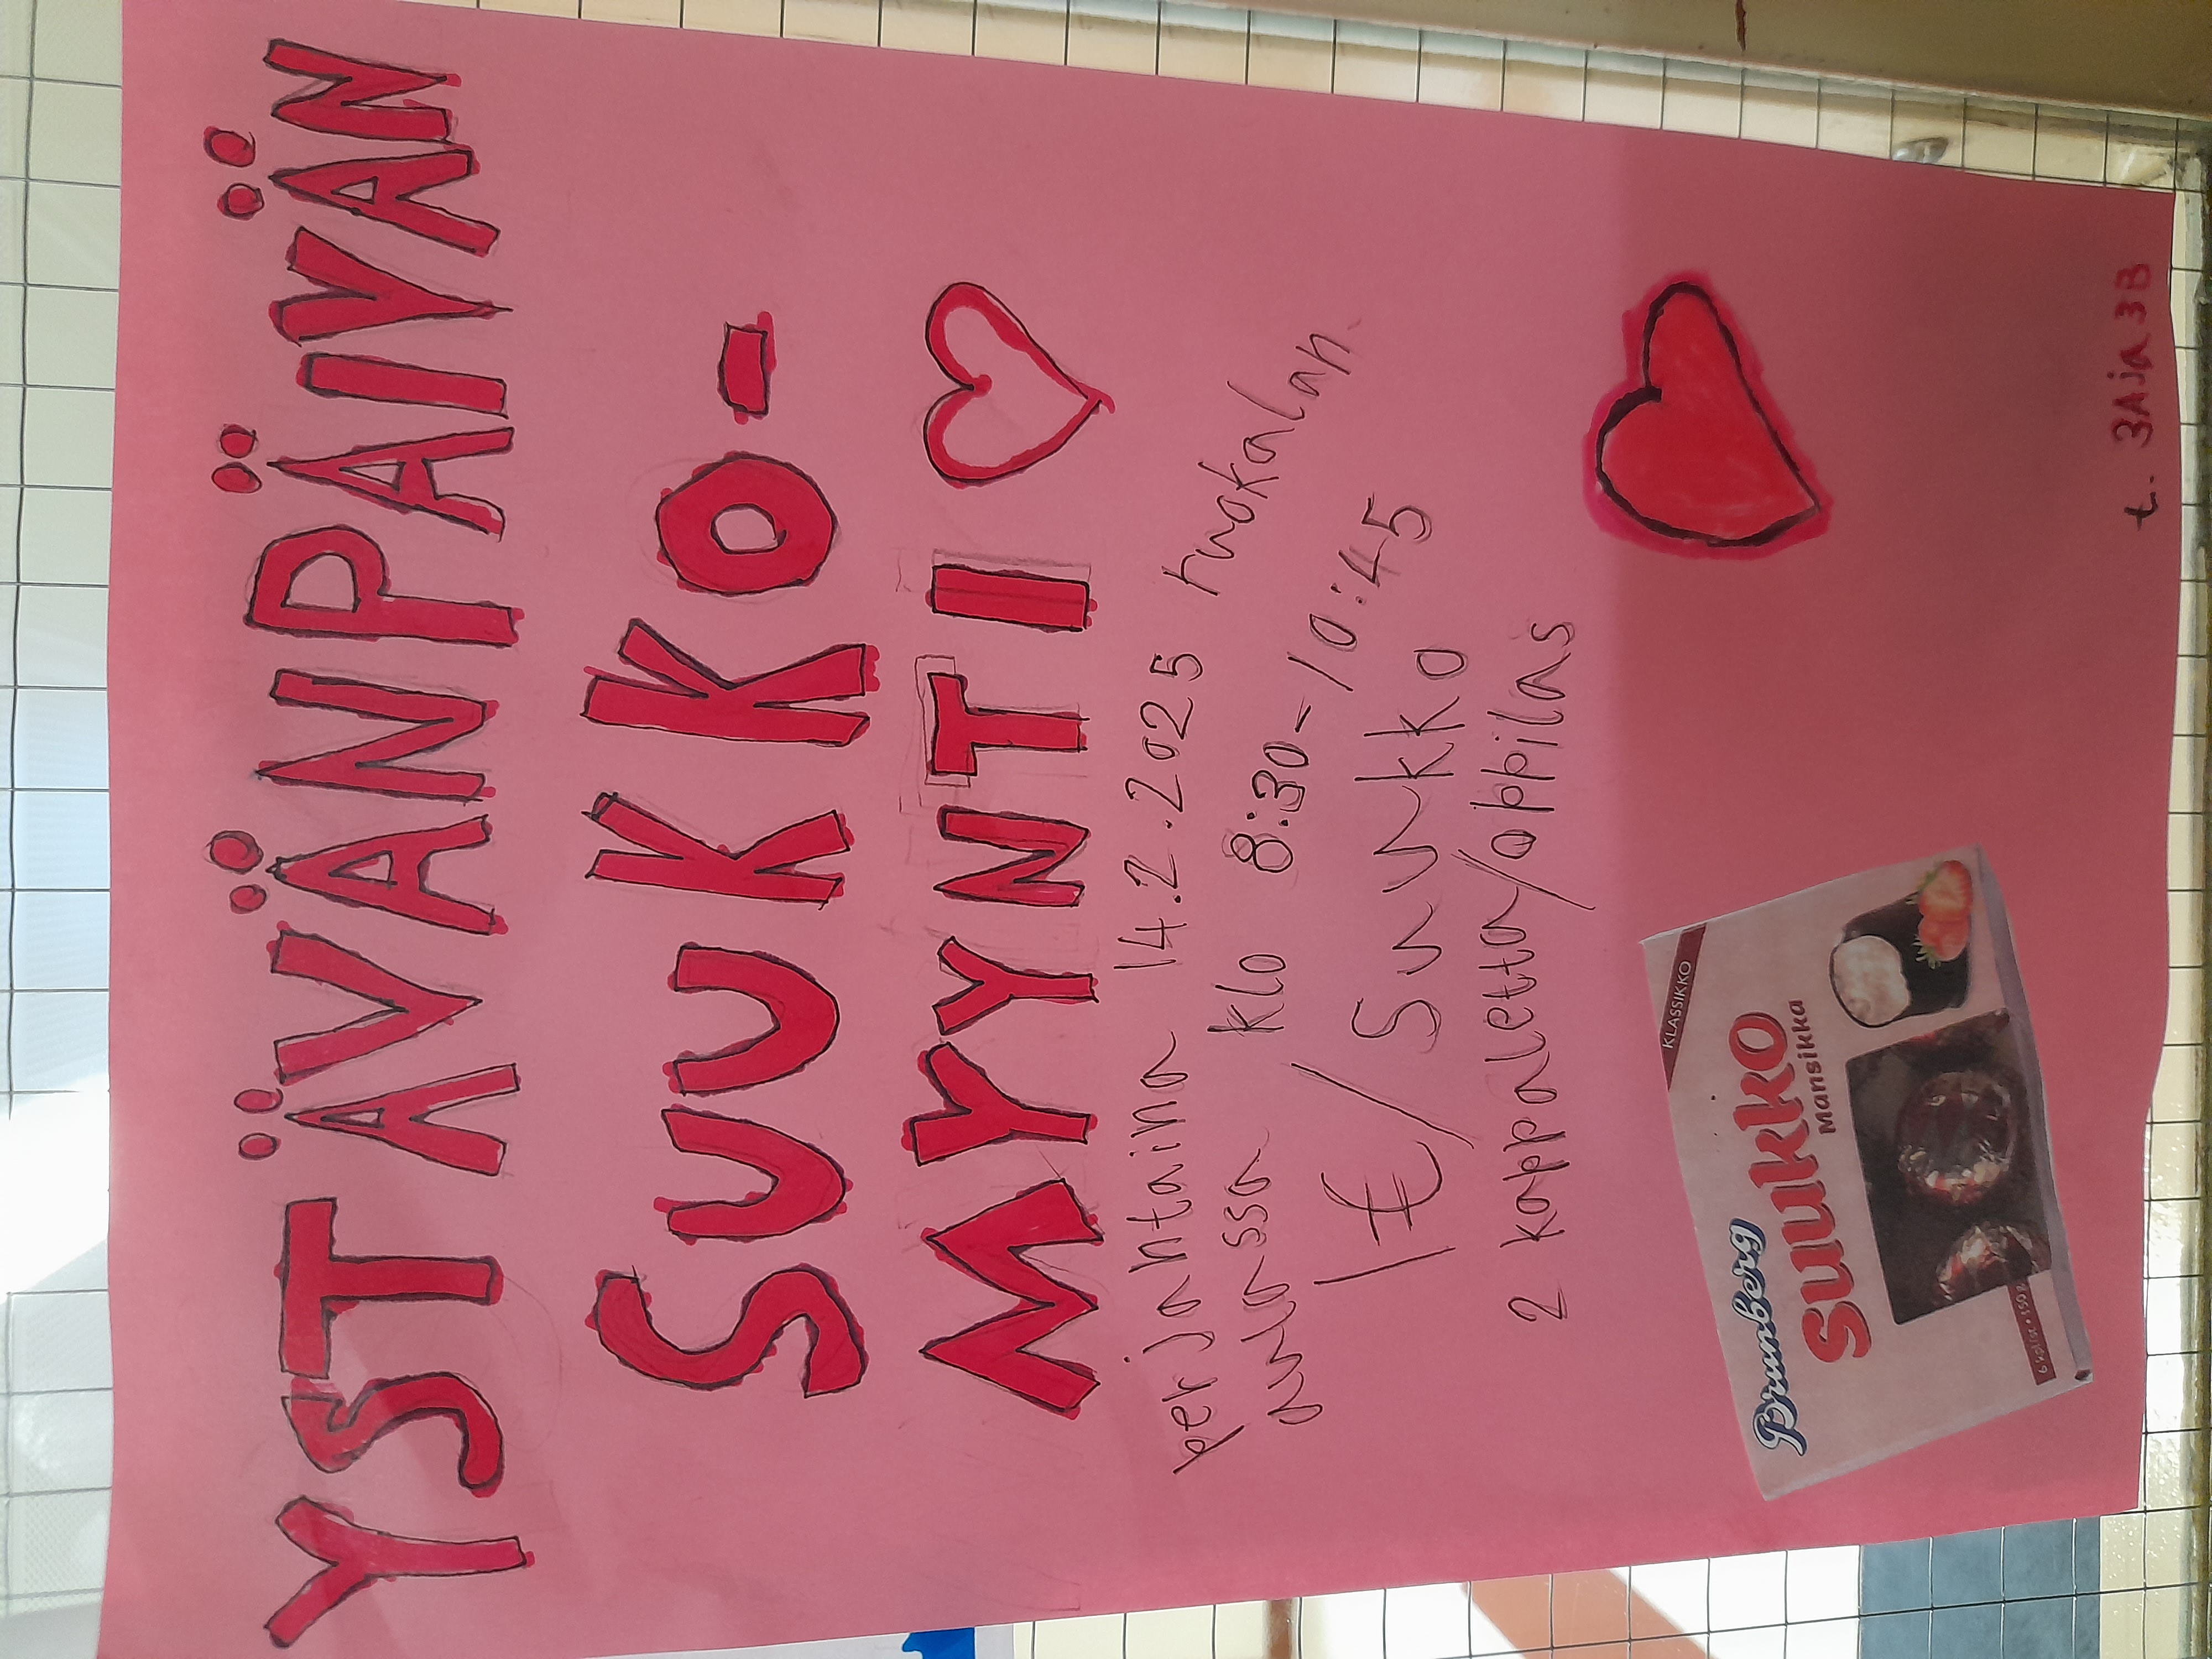 YSTÄVÄNPÄIVÄN
SUUKKO-
MYYNTI
perjantaina 14.2.2025 ruokalan
aulassa klo 8:30-10:45
1€/Suukko
2 kappaletta/oppilas
KLASSIKKO
Brunberg
Suukko
Mansikka
6 kpl/st • 150 g
t. 3A ja 3B